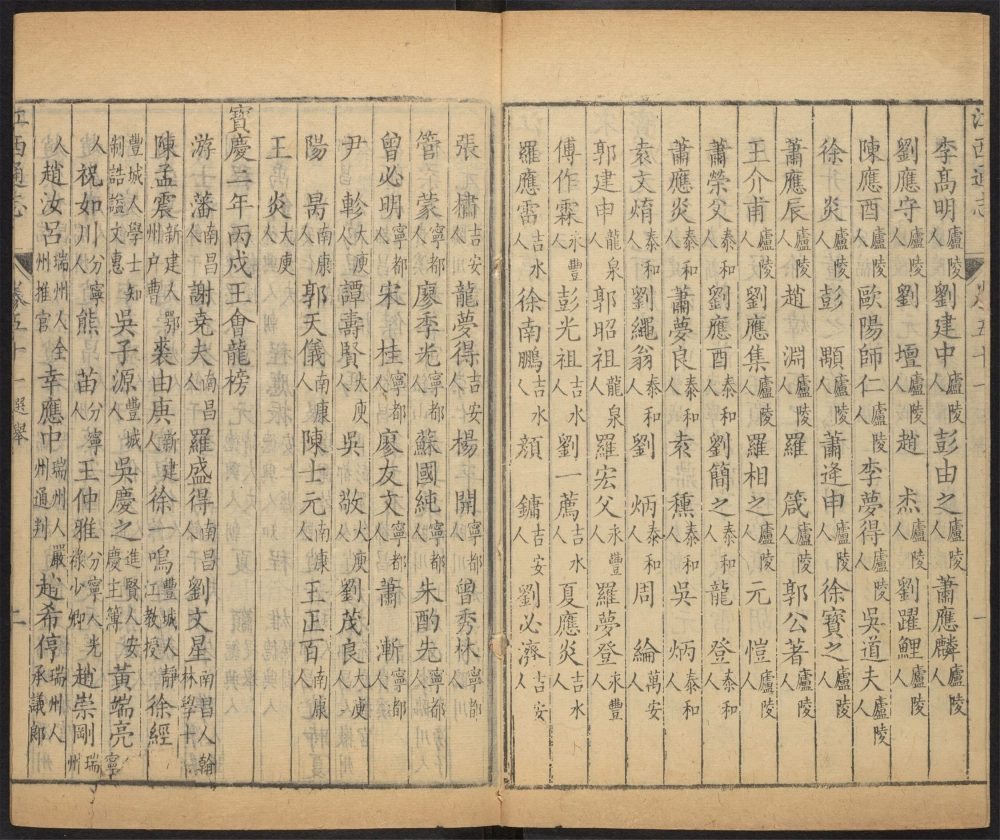 李高明廬陵人劉建中廬陵人彭由之廬陵人蕭應麟廬陵人
劉應守廬陵人劉 壇廬陵人趙 杰廬陵人劉躍鯉廬陵人
陳應酉廬陵人歐陽師仁廬陵人李夢得廬陵人吳道夫廬陵人
徐 炎廬陵人彭 顒廬陵人蕭逢申廬陵人徐寶之廬陵人
蕭應辰廬陵人趙 淵廬陵人羅 箴廬陵人郭公著廬陵人
王介甫廬陵人劉應集廬陵人羅相之廬陵人元 愷廬陵人
蕭榮父泰和人劉應酉泰和人劉簡之泰和人龍 登泰和人
蕭應炎泰和人蕭夢良泰和人袁 櫄泰和人吳 炳泰和人
袁文焴泰和人劉繩翁泰和人劉 炳泰和人周 綸萬安人
郭建申龍泉人郭昭祖龍泉人羅宏父永豐人羅夢登永豐人
傅作霖永豐人彭光祖吉水人劉一薦吉水人夏應炎吉水人
羅應雷吉水人徐南鵬吉水人顔 鏞吉安人劉必濟吉安人
張 櫹吉安人龍夢得吉安人楊 開寧都人曾秀林寧都人
管 蒙寧都人廖季光寧都人蘇國純寧都人朱酌先寧都人
曾必明寧都人宋 桂寧都人廖友文寧都人蕭 漸寧都人
尹 軫大庾人譚壽賢大庾人吳 敬大庾人劉茂良大庾人
陽 昺南康人郭天儀南康人陳士元南康人王正百南康人
王 炎大庾人
寶慶二年丙戌王會龍榜
游士藩南昌人謝尭夫南昌人羅盛得南昌人劉文星南昌人翰林學士
陳孟震新建人鄂州户曹裘由庚新建人徐 鳴豐城人靜江教授徐經
豐城人學士知制誥諡文惠吳子源豐城人吳慶之進賢人安慶主簿黃端亮寧
人祝如川分寧人熊 苗分寧人王仲雅分寧人光祿少卿趙崇剛瑞州
人趙汝呂瑞州人全州推官幸應中瑞州人嚴州通判趙希停瑞州人承議郎
江西通志 卷五十一 選舉